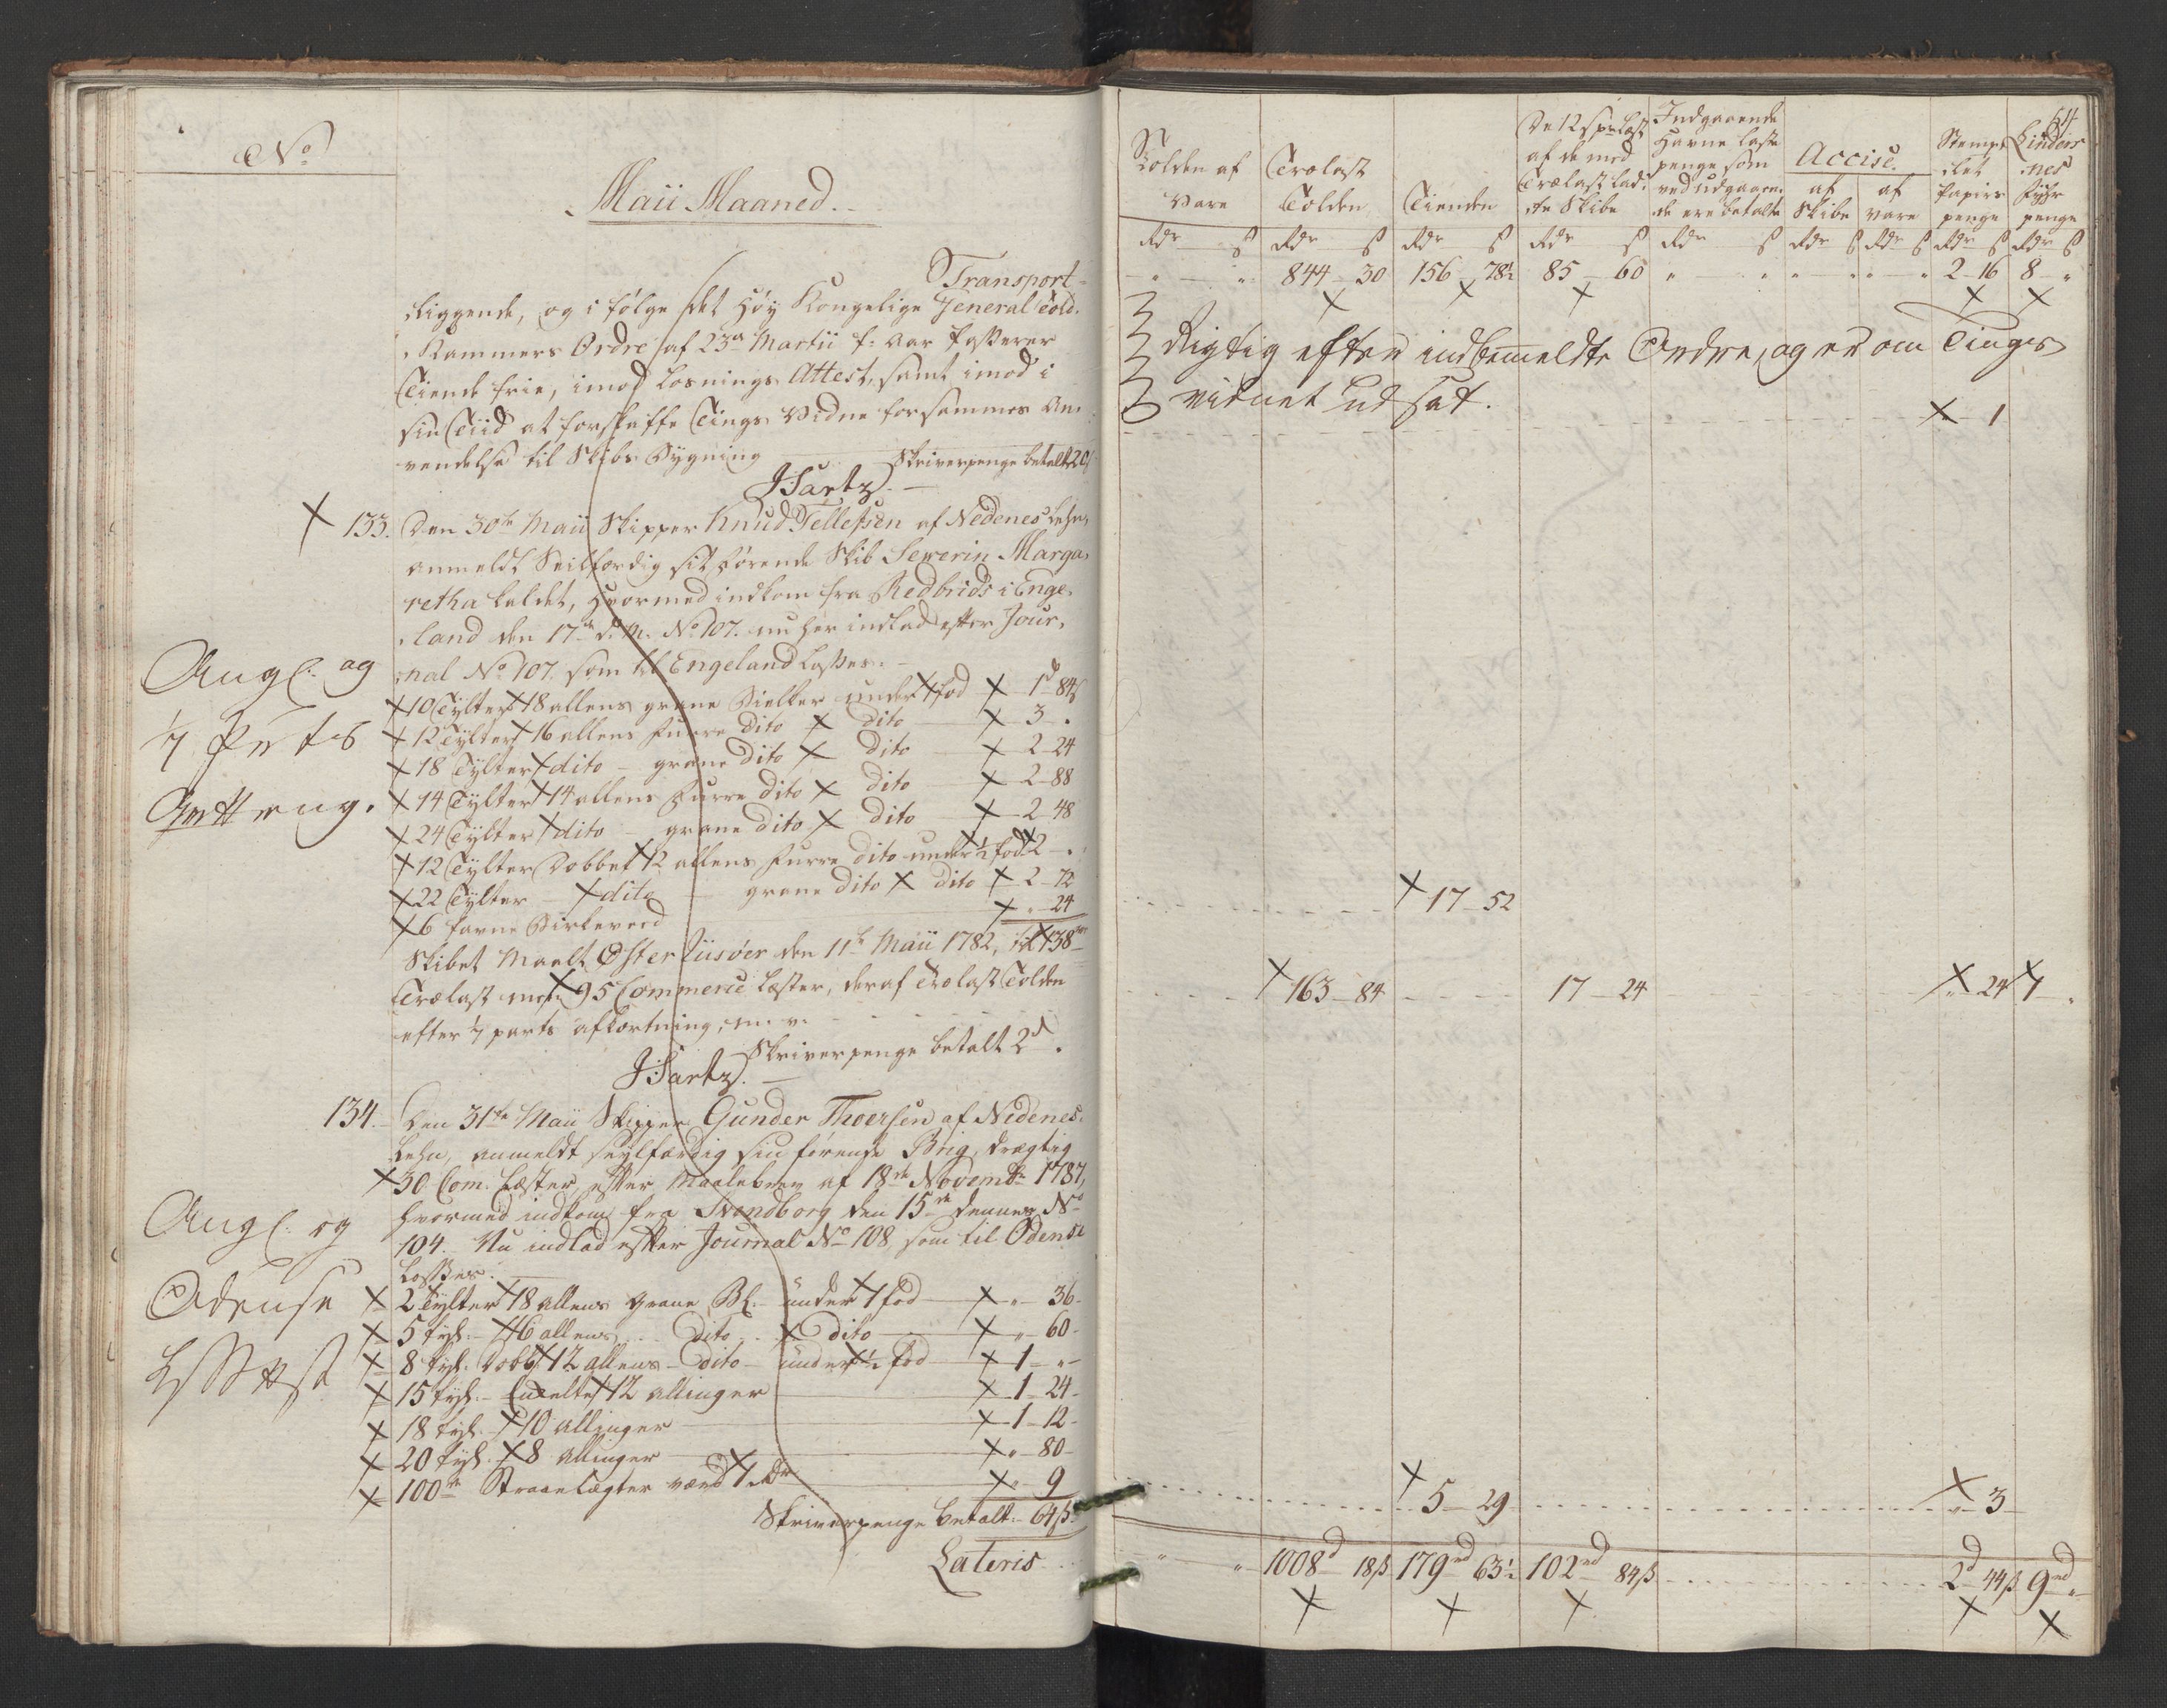 No
Maii Maaned.
Transport
liggende, og i følge det Høy Kongelige General Told-
Kammers Ordre af 23de Martii f: var passerer
Tiende frie, imod losnings Attest, samt imod i
sin Tiid at forskaffe Tings Vidne for sammes An-
vendelse til Skibs Bygning
Skriverpenge betalt 20
JSartz.
133. Den 30te Maii Skipper Knud Tellefsen af Nedenes Lehn,
anmeldt Seilfærdig sit førende Skib Sewerin Marga-
retha kaldet, hvormed indkom fra Redbrids i Enge-
land den 17de d: M: No 107. nu her indlad efter Jour-
nal No 107. som til Engeland losses.
Angl: og
1/7 Parts
Qvitterng.
10 Tylter 18 allens grane Bielker under 1 fod 1d 84s
12 Tylter 16 allens furre dito dito 3 .
18 Tylter dito grane dito dito 2 24
14 Tylter 14 allens furre dito dito 2 88
24 Tylter dito grane dito dito 2 48
12 Tylter Dobbet 12 allens furre dito under 1/2 fod 2 .
22 Tylter dito grane dito dito 2 72
6 favne Birkeved " 24
Skibet Maalt Øster Riisøer den 11te Maii 1782, til 138
Trælast mest 95 Commerce Læster, deraf Trælast Tolden
efter 1/7 parts afkortning, m. v.
Skriverpenge betalt 2d.
JSartz.
134. Den 31te Maii Skipper Gunder Thoersen af Nedenes
Lehn, anmeldt seylfærdig sin førende Brig, drægtig
30 Com. Læster, efter Maalebrev af 18de Novembr 1787,
hvormed indkom fra Svendborg den 15de dennes No
104. Nu indlad efter Journal No 108, som til Odense
losses.
Angl: og
Odense
Attest
2 Tylter 18 allens grane Bl. under 1 fod " 36
5 tyl. 16 allens dito dito " 60
8 tyl. dobb 12 allens dito under 1/2 fod 1 "
15 tyl. Enkelte 12 allinger 1 24
18 tyl. 10 allinger 1 12
20 tyl. 8 allinger " 80
100de Straaelægter værd 1 Rdr " 9
Skriverpenge betalt 64 ß
Lateris
64
Tolden af Vare
Trælast Tolden
Tienden
De 12 s pr Læst af de med Trælast lad-te Skibe
Indgaaende Havne Laste penge som ved udgaaen-de ere betalte
Accise.
af Skibe
af vare
Stempe-let Papirs penge
Lindes-nes fyhr penge
Rdr ß Rdr ß Rdr ß Rdr ß Rdr ß Rdr ß Rdr ß Rdr ß Rdr ß
" " 844 30 156 78½ 85 60 " " " " " " 2 16 8 "
Rigtig efter indbemeldte Ordre, og er om Tings
vidnet Udsat.
1
17 52
163 84 17 24 " 24 1 "
5 29 " 3
" " 1008d 18ß 179rd 63½ 102rd 84ß 2d 44ß 9rd "